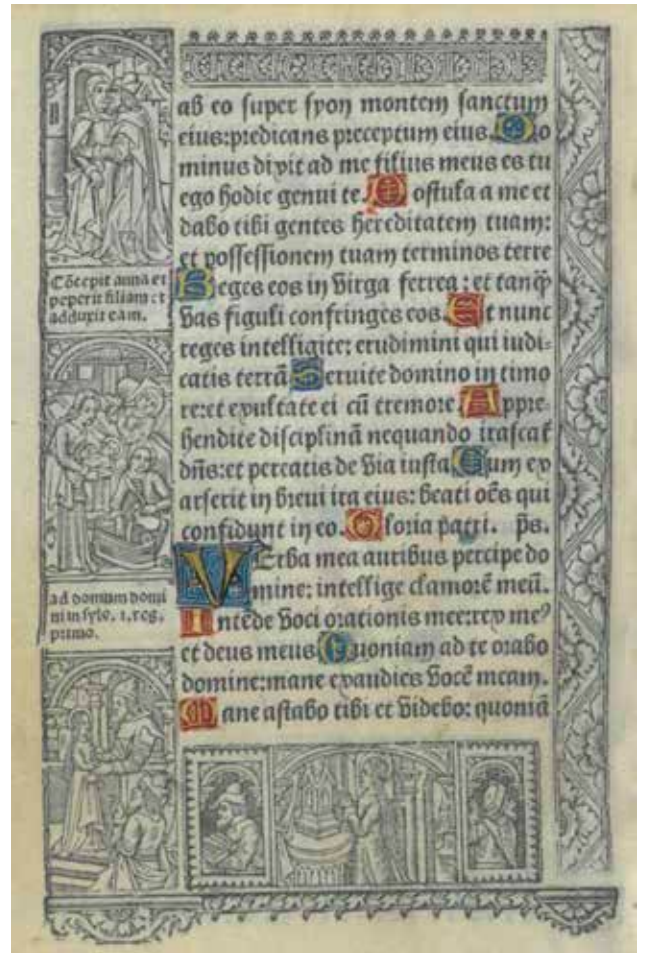 ab eo super syon montem sanctum
eius:predicans preceptum eius. Do
minus dixit ad me filius meus es tu
ego hodie genui te. Postula a me et
dabo tibi gentes hereditatem tuam:
et possessionem tuam terminos terre
Reges eos in virga ferrea: et tanq̄
vas figuli confringes eos. Et nunc
reges intelligite: erudimini qui iudi-
catis terrā Seruite domino in timo
re:et exultate ei cū tremore Appre-
hendite disciplinā nequando irascat̄
dn̄s:et pereatis de via iusta Cum ex
arserit in breui ira eius: beati oēs qui
confidunt in eo. Gloria patri. p̄s.
VErba mea auribus percipe do
mine: intellige clamorē meū.
Intēde voci orationis mee:rex meꝰ
et deus meus Quoniam ad te orabo
domine:mane exaudies vocē meam.
Mane astabo tibi et videbo: quoniā
Cōcepit anna et
peperit filium et
adduxit eam.
ad domum domi
ni in sylo. 1. reg.
primo.